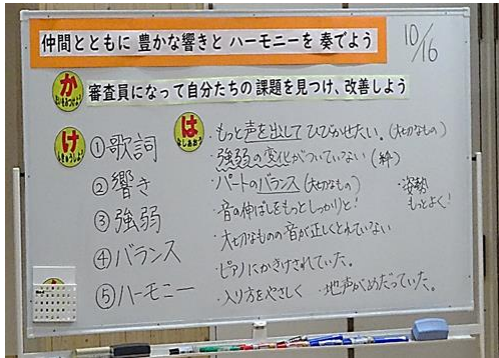 仲間とともに 豊かな響きと ハーモニーを 奏でよう
10/16
か
審査員になって自分たちの課題を見つけ、改善しよう
け
①歌詞
②響き
③強弱
④バランス
⑤ハーモニー
は
・もっと声を出して ひびかせたい。(大切なもの)
・強弱の変化がついていない (絆)
・パートのバランス (大切なもの)
・音の伸ばしをもっとしっかりと!
・大切なものの音が正しくとれていない
・ピアノにかきけされていた。
・入り方をやさしく ・地声がめだっていた。
・姿勢
もっとよく!